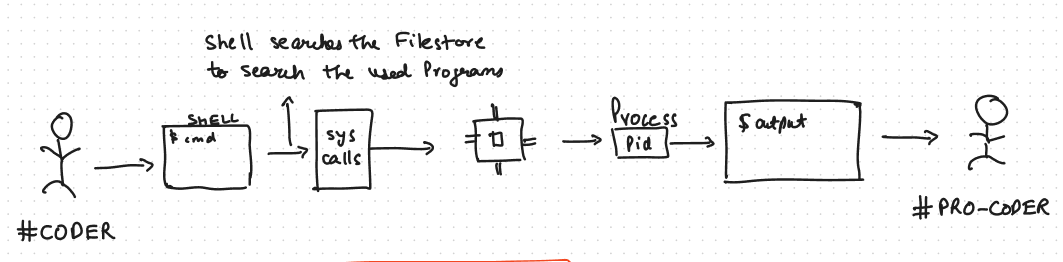 Shell searches the Filestore
to search the used Programs
SHELL
$ cmd
sys
calls
Process
Pid
$ output
#CODER
# PRO-CODER